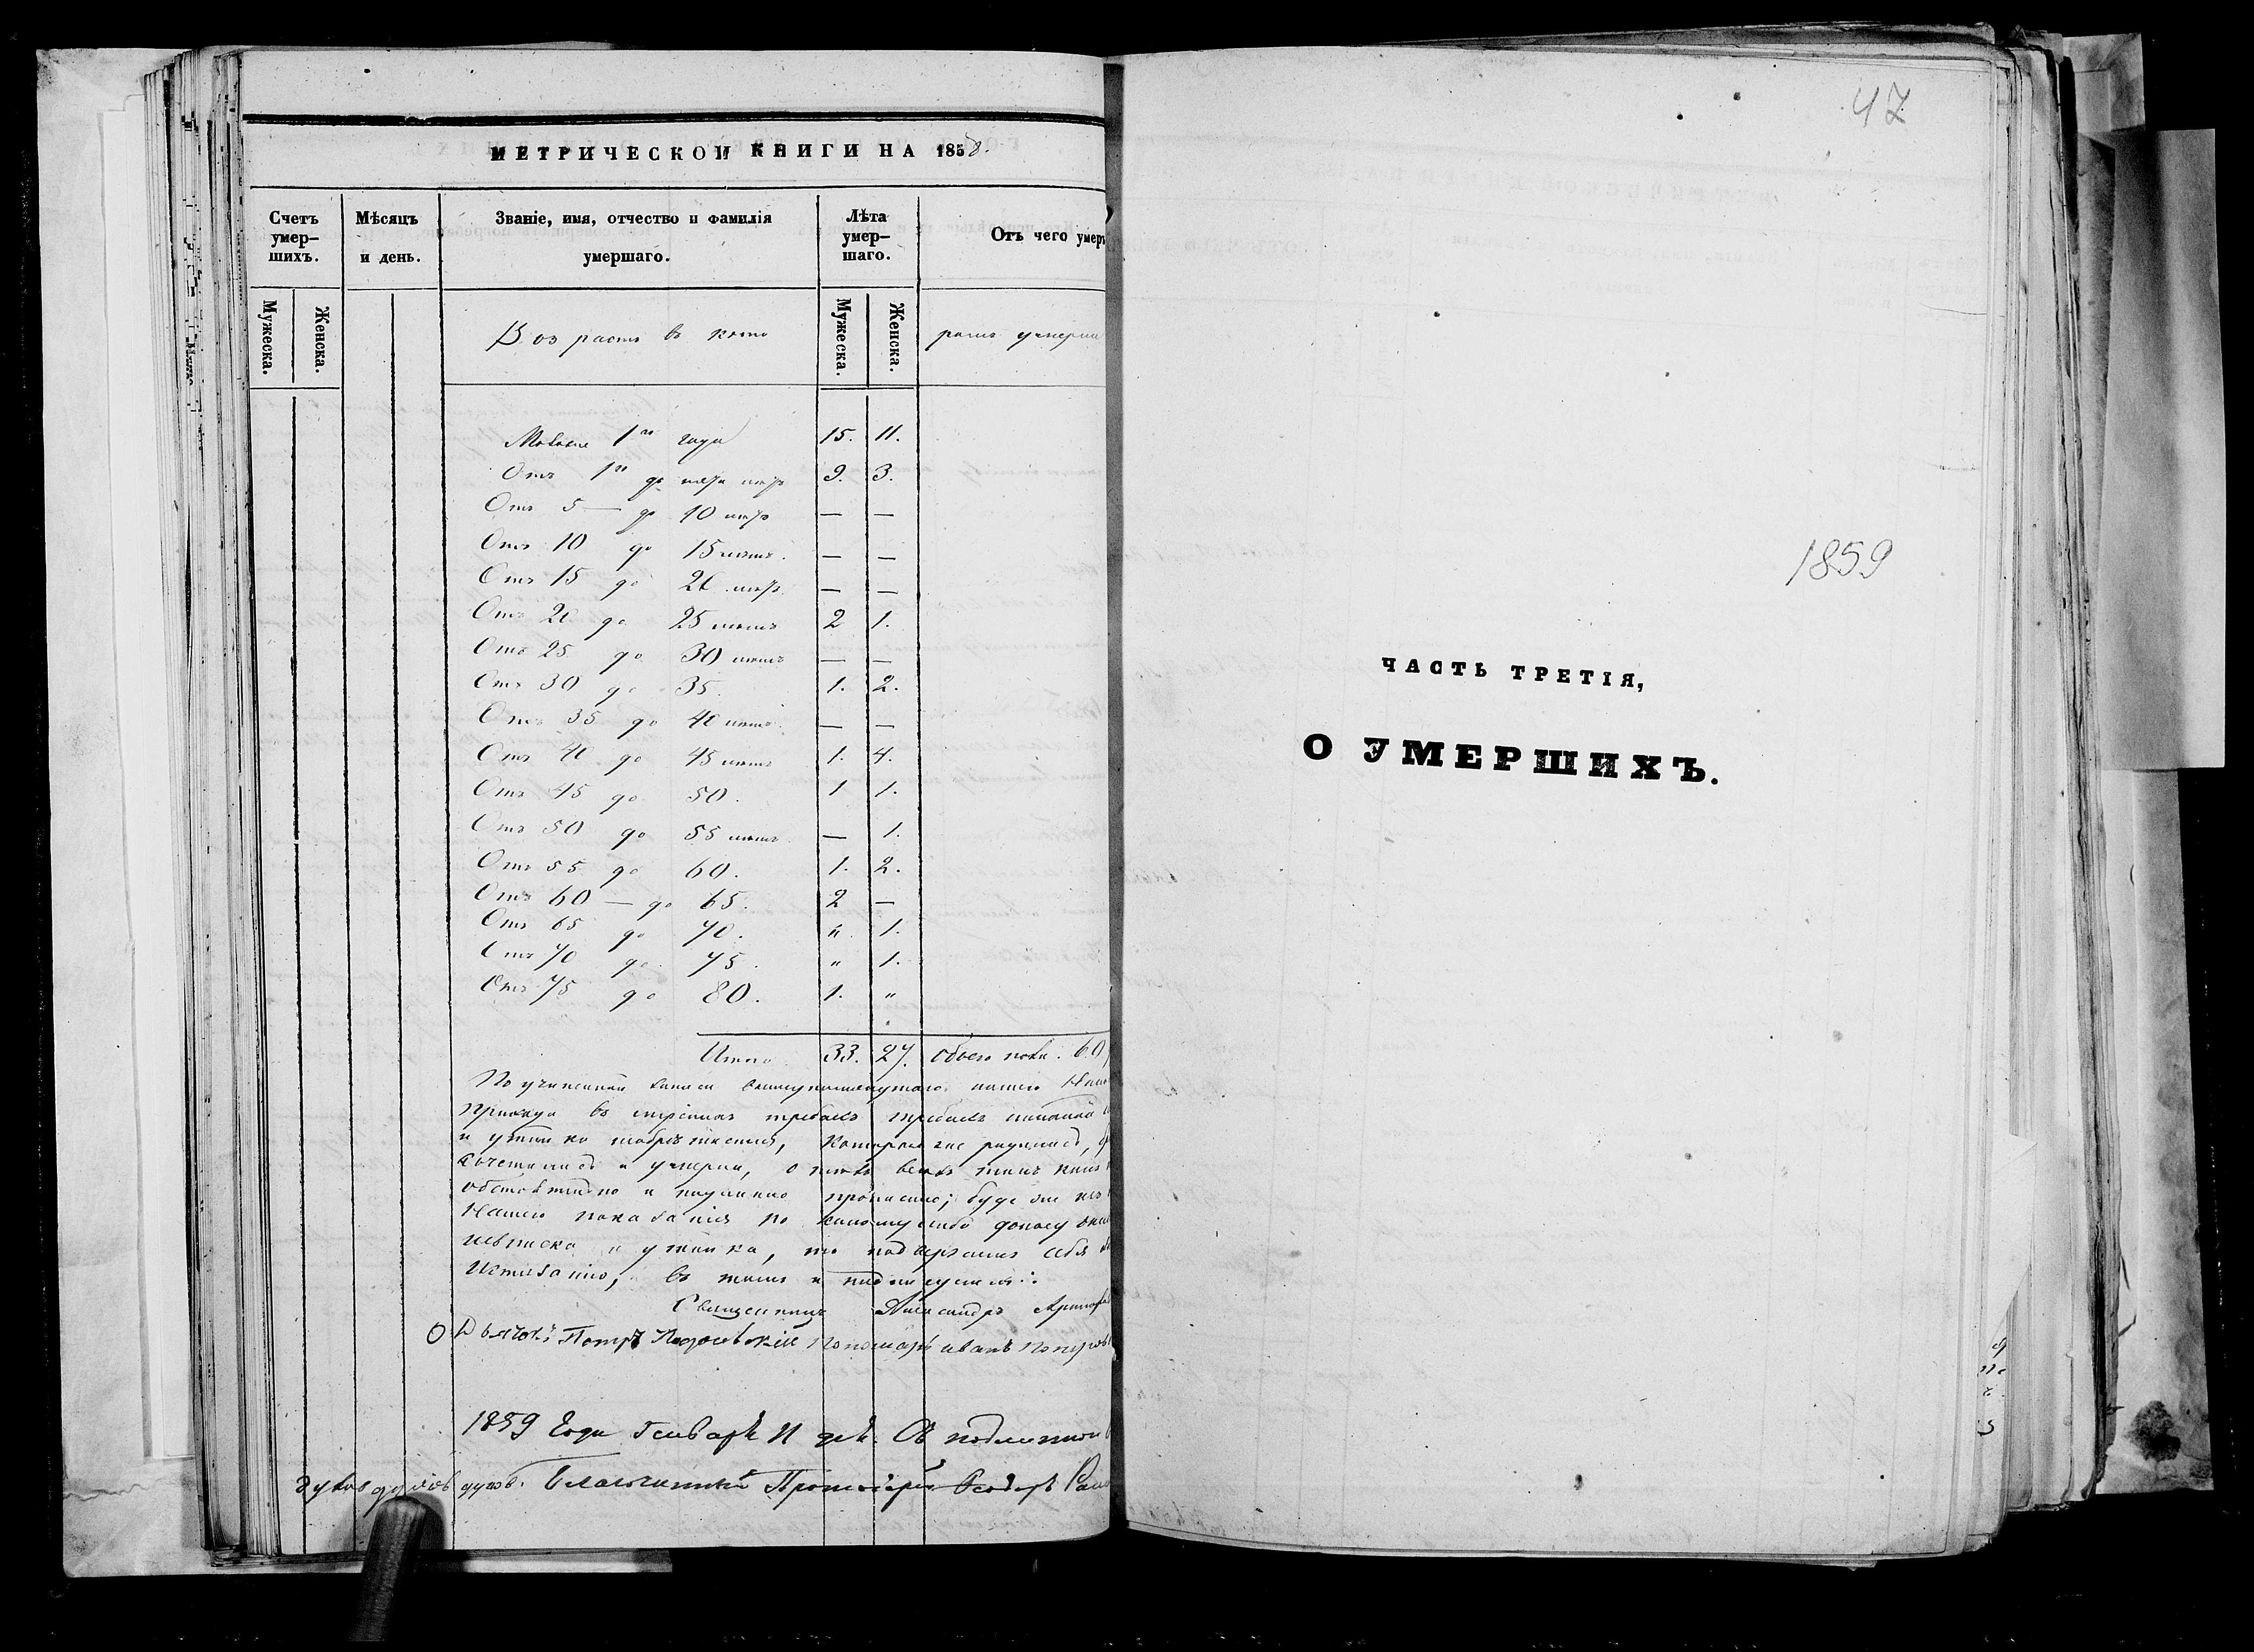 МЕТРИЧЕСКОЙ КНИГИ НА 1858.
Счетъ умер-шихъ.
Мѣсяцъ и день.
Званіе, имя, отчество и фамилія умершаго.
Лѣта умер-шаго.
Отъ чего умер
Мужеска.
Женска.
Возрастъ въ кото
Мужеска.
Женска.
рамъ умерли
1го года 15. 11.
Отъ 1го до пяти лѣтъ 9. 3.
Отъ 5 — до 10 лѣтъ — —
Отъ 10 до 15 лѣтъ. — —
Отъ 15 до 20 лѣтъ. — —
Отъ 20 до 25 лѣтъ 2 1.
Отъ 25 до 30 лѣтъ — —
Отъ 30 до 35. 1. 2.
Отъ 35 до 40 лѣтъ. — —
Отъ 40 до 45 лѣтъ 1. 4.
Отъ 45 до 50. 1 1.
Отъ 50 до 55 лѣтъ — 1.
Отъ 55 до 60. 1. 2.
Отъ 60 — до 65. 2 —
Отъ 65 до 70. " 1.
Отъ 70 до 75. " 1.
Отъ 75 до 80. 1. "
Итого 33. 27. обоего пола. 60
По учиненіи записи вышеупомянутаго нашего
прихода въ
и утайки которые же родились,
сочетались и умерли, о тѣхъ всѣхъ
обстоятельно и подлинно прописано; буде же
нашего показанія по какому либо доносу
и утайка, то подвергаемъ себя
истязанію, въ томъ и подписуемся:
Священникъ Александръ
Дьячокъ Петръ Пономарь Иванъ
1859 Года Генваря 11 дня. Съ подлинною
Благочинный Протоіерей Ѳеодоръ
47
1859
ЧАСТЬ ТРЕТІЯ,
О УМЕРШИХЪ.